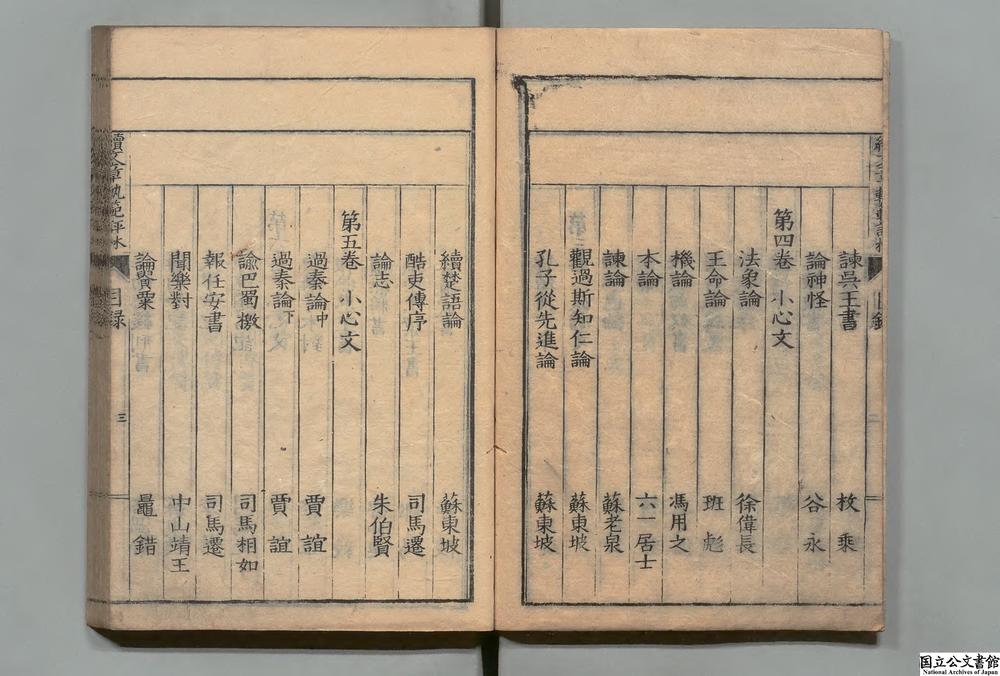 諫吳王書 枚乘
論神怪 谷永
第四卷 小心文
法象論 徐偉長
王命論 班彪
機論 馮用之
本論 六一居士
諫論 蘇老泉
觀過斯知仁論 蘇東坡
孔子從先進論 蘇東坡
續楚語論 蘇東坡
酷吏傳序 司馬遷
論志 朱伯賢
第五卷 小心文
過秦論中 賈誼
過秦論下 賈誼
諭巴蜀檄 司馬相如
報任安書 司馬遷
聞樂對 中山靖王
論貴粟 鼂錯
續文章軌範評林 目錄 三
国立公文書館
National Archives of Japan